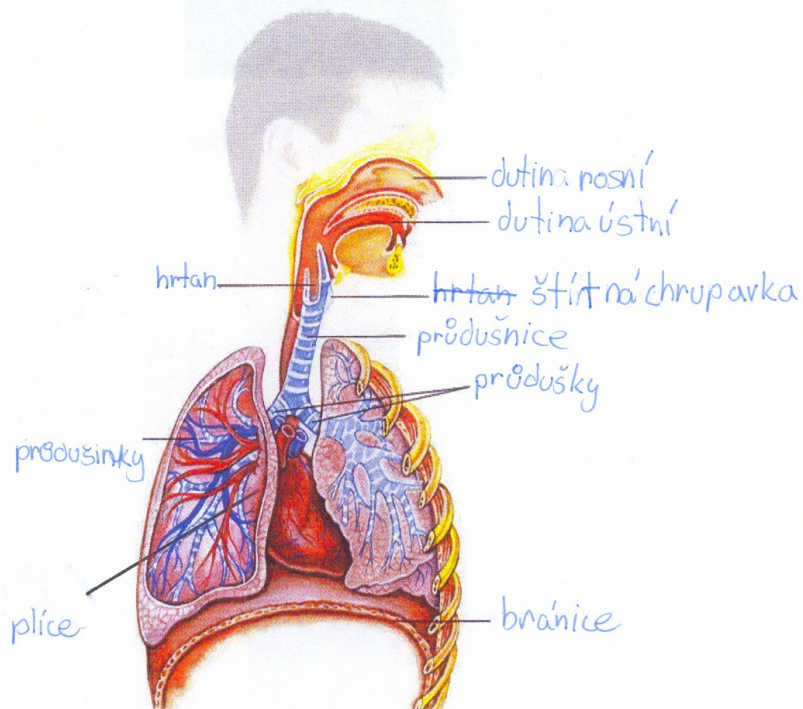 dutina nosní
dutina ústní
hrtan
hrtan štítná chrupavka
průdušnice
průdušky
průdušinky
plíce
bránice